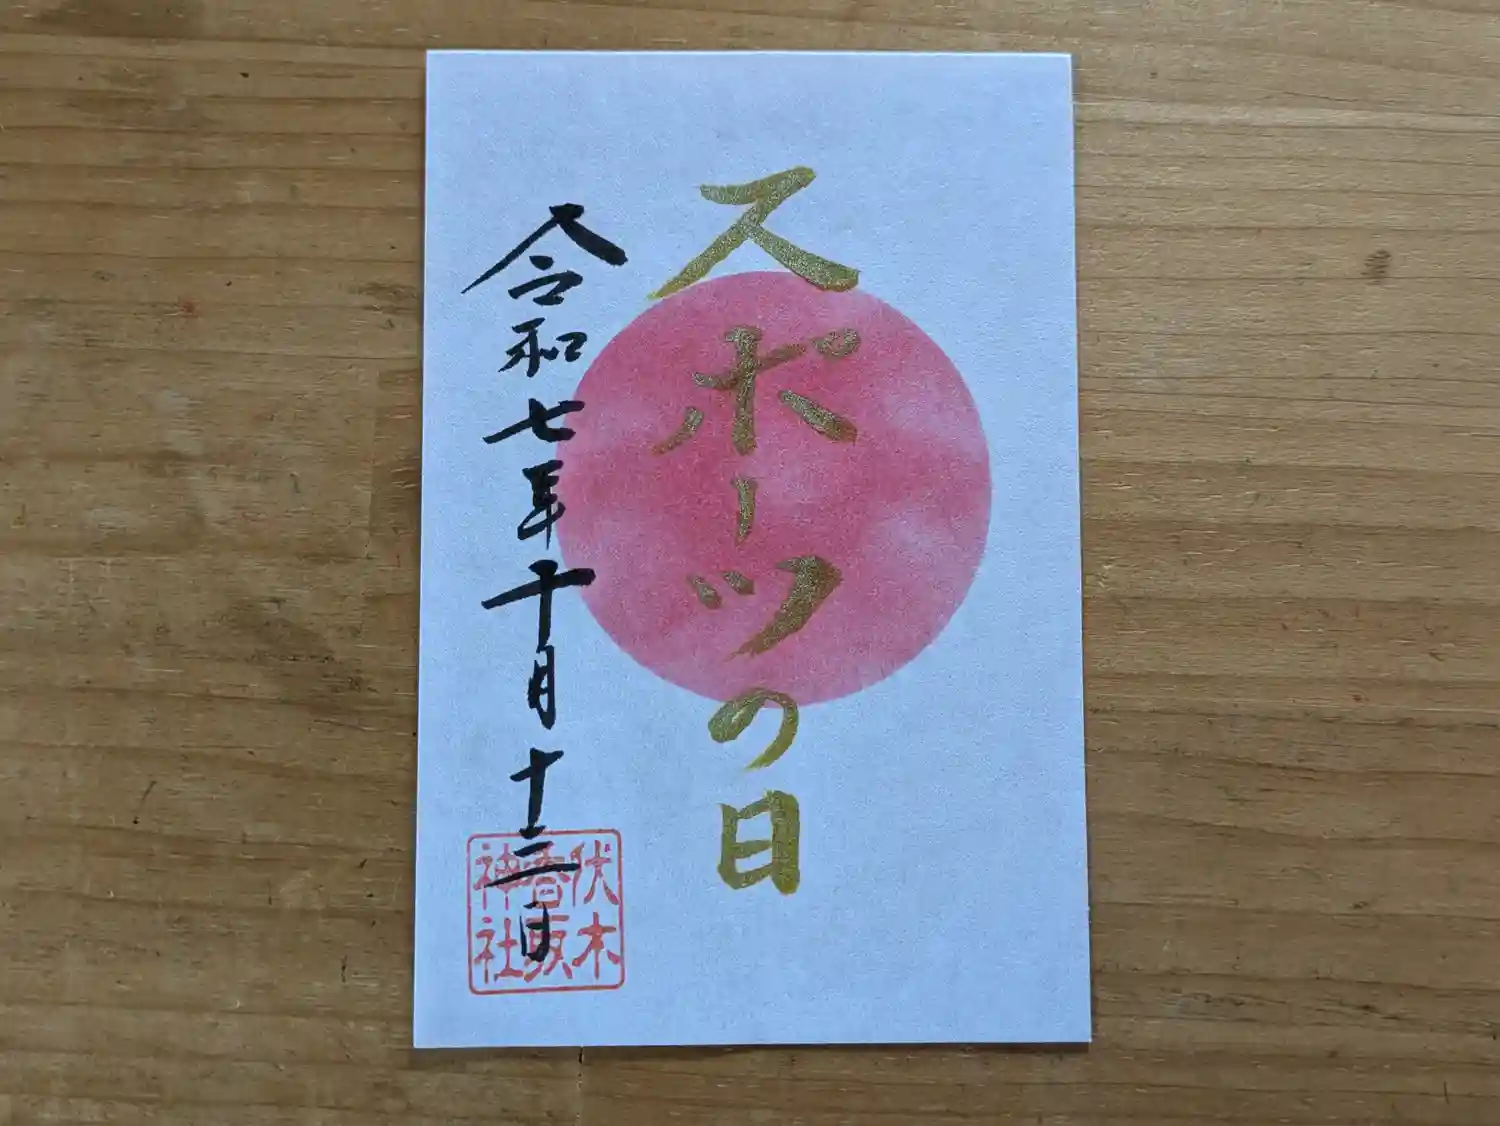 スポーツの日
令和七年十月十三日
伏木
香取
神社